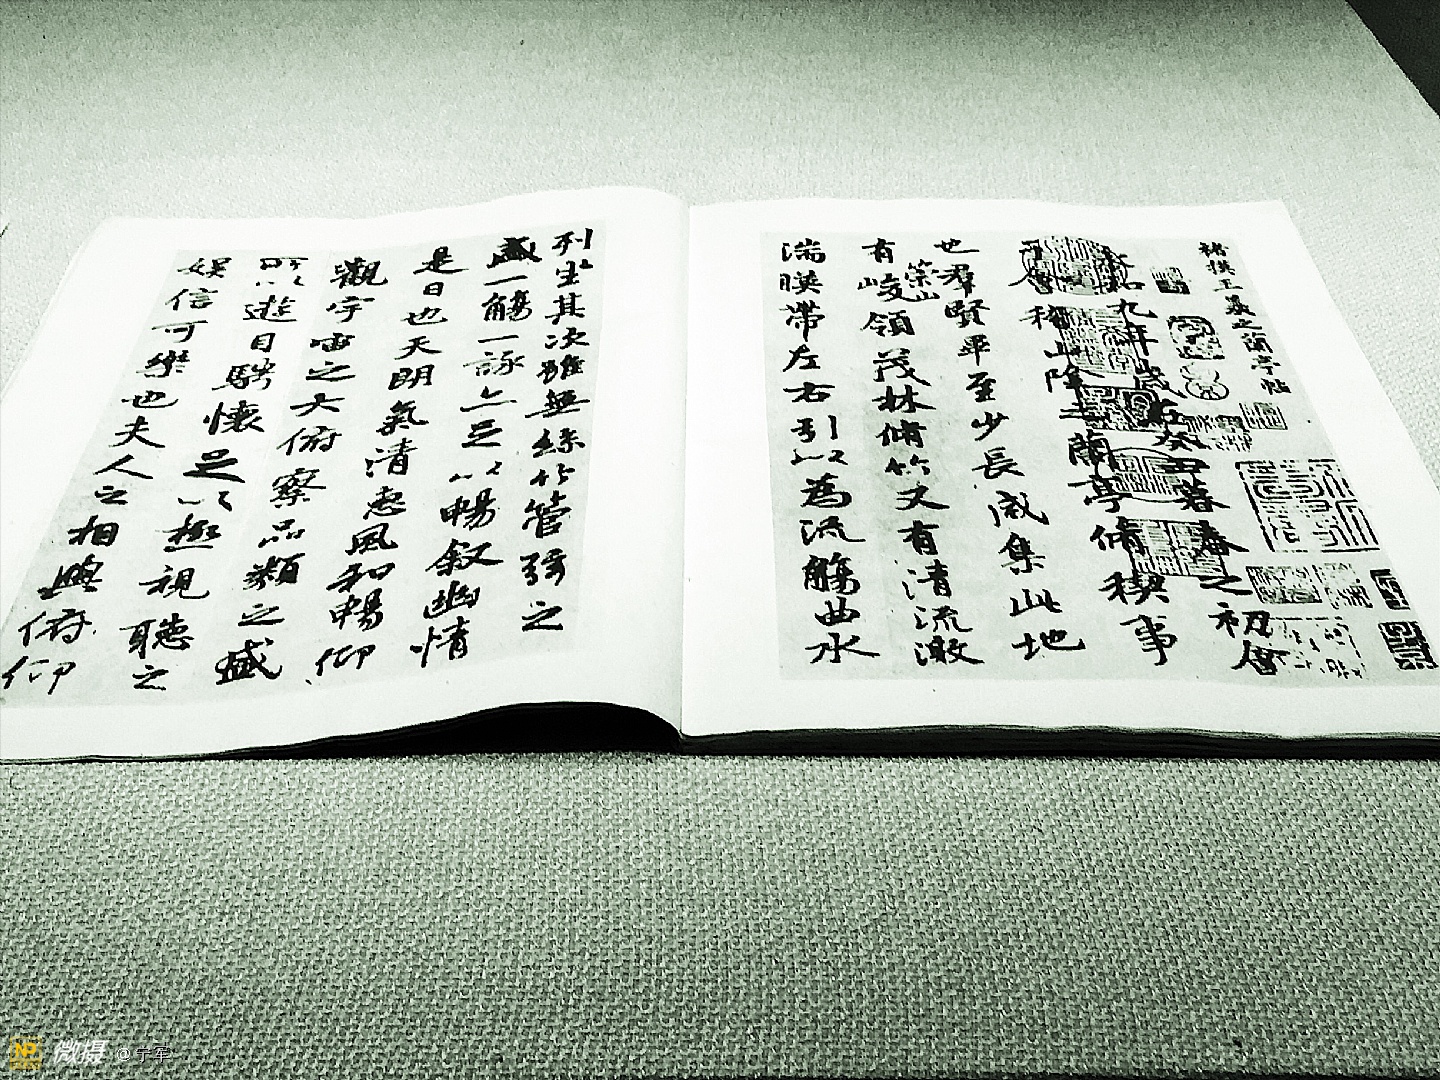 褚摸王羲之蘭亭帖
永和九年歲在癸丑暮春之初會
于會稽山陰之蘭亭脩稧事
也羣賢畢至少長咸集此地
有崇山峻領茂林脩竹又有清流激
湍暎帶左右引以為流觴曲水
列坐其次雖無絲竹管弦之
盛一觴一詠亦足以暢叙幽情
是日也天朗氣清惠風和暢仰
觀宇宙之大俯察品類之盛
所以遊目騁懷足以極視聽之
娛信可樂也夫人之相與俯仰
微摄 @宁军